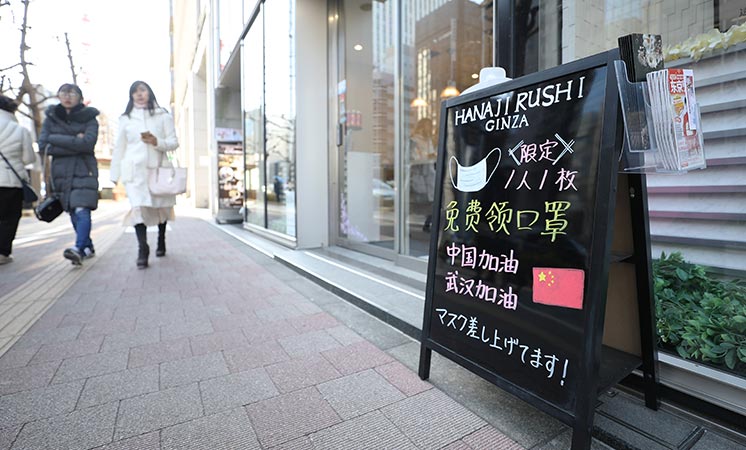 HANAJIRUSHI
GINZA
限定
1人1枚
免费领口罩
中国加油
武汉加油
マスク差し上げてます!